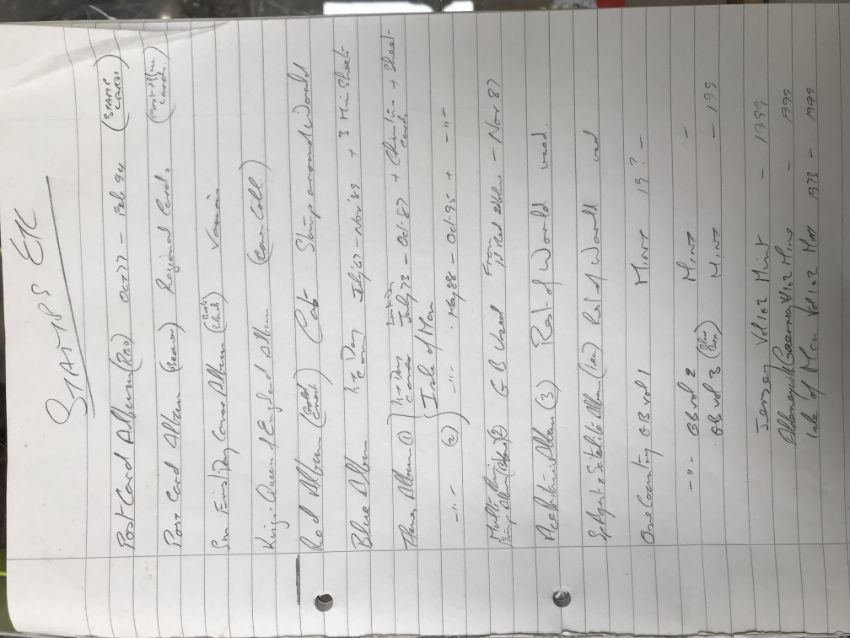 STAMPS ETC
Post Card Album (Red) Oct 77 - Feb 94 (STAMP CARDS)
Post Card Album (Brown) Regional Cards (Post Office Cards)
Sm First Day Cover Album (Black) Various
Kings + Queens of England Album (Coin Coll.)
Red Album (Gold) Cats Ships around World
Blue Album 1st Day Cover July '67 - Nov '89 + 3 Mini Sheet
Album (1) 1st Day Cover July 73 - Oct 87 + + Sheet
Isle of Man
-"- (2) -"- May 88 - Oct 95 + -"-
Multi Ring Album G B Used From 1st - Nov 87
Album (3) Rest of World used
Album Rest of World used
One Country GB vol 1 Mint 19? -
-"- GB vol 2 Mint -
GB vol 3 (Blue Box) Mint - 199
Jersey Vol 1 & 2 Mint - 1999
Alderney + Guernsey V 1 & 2 Mint - 1999
Isle of Man Vol 1 & 2 1973 - 1999